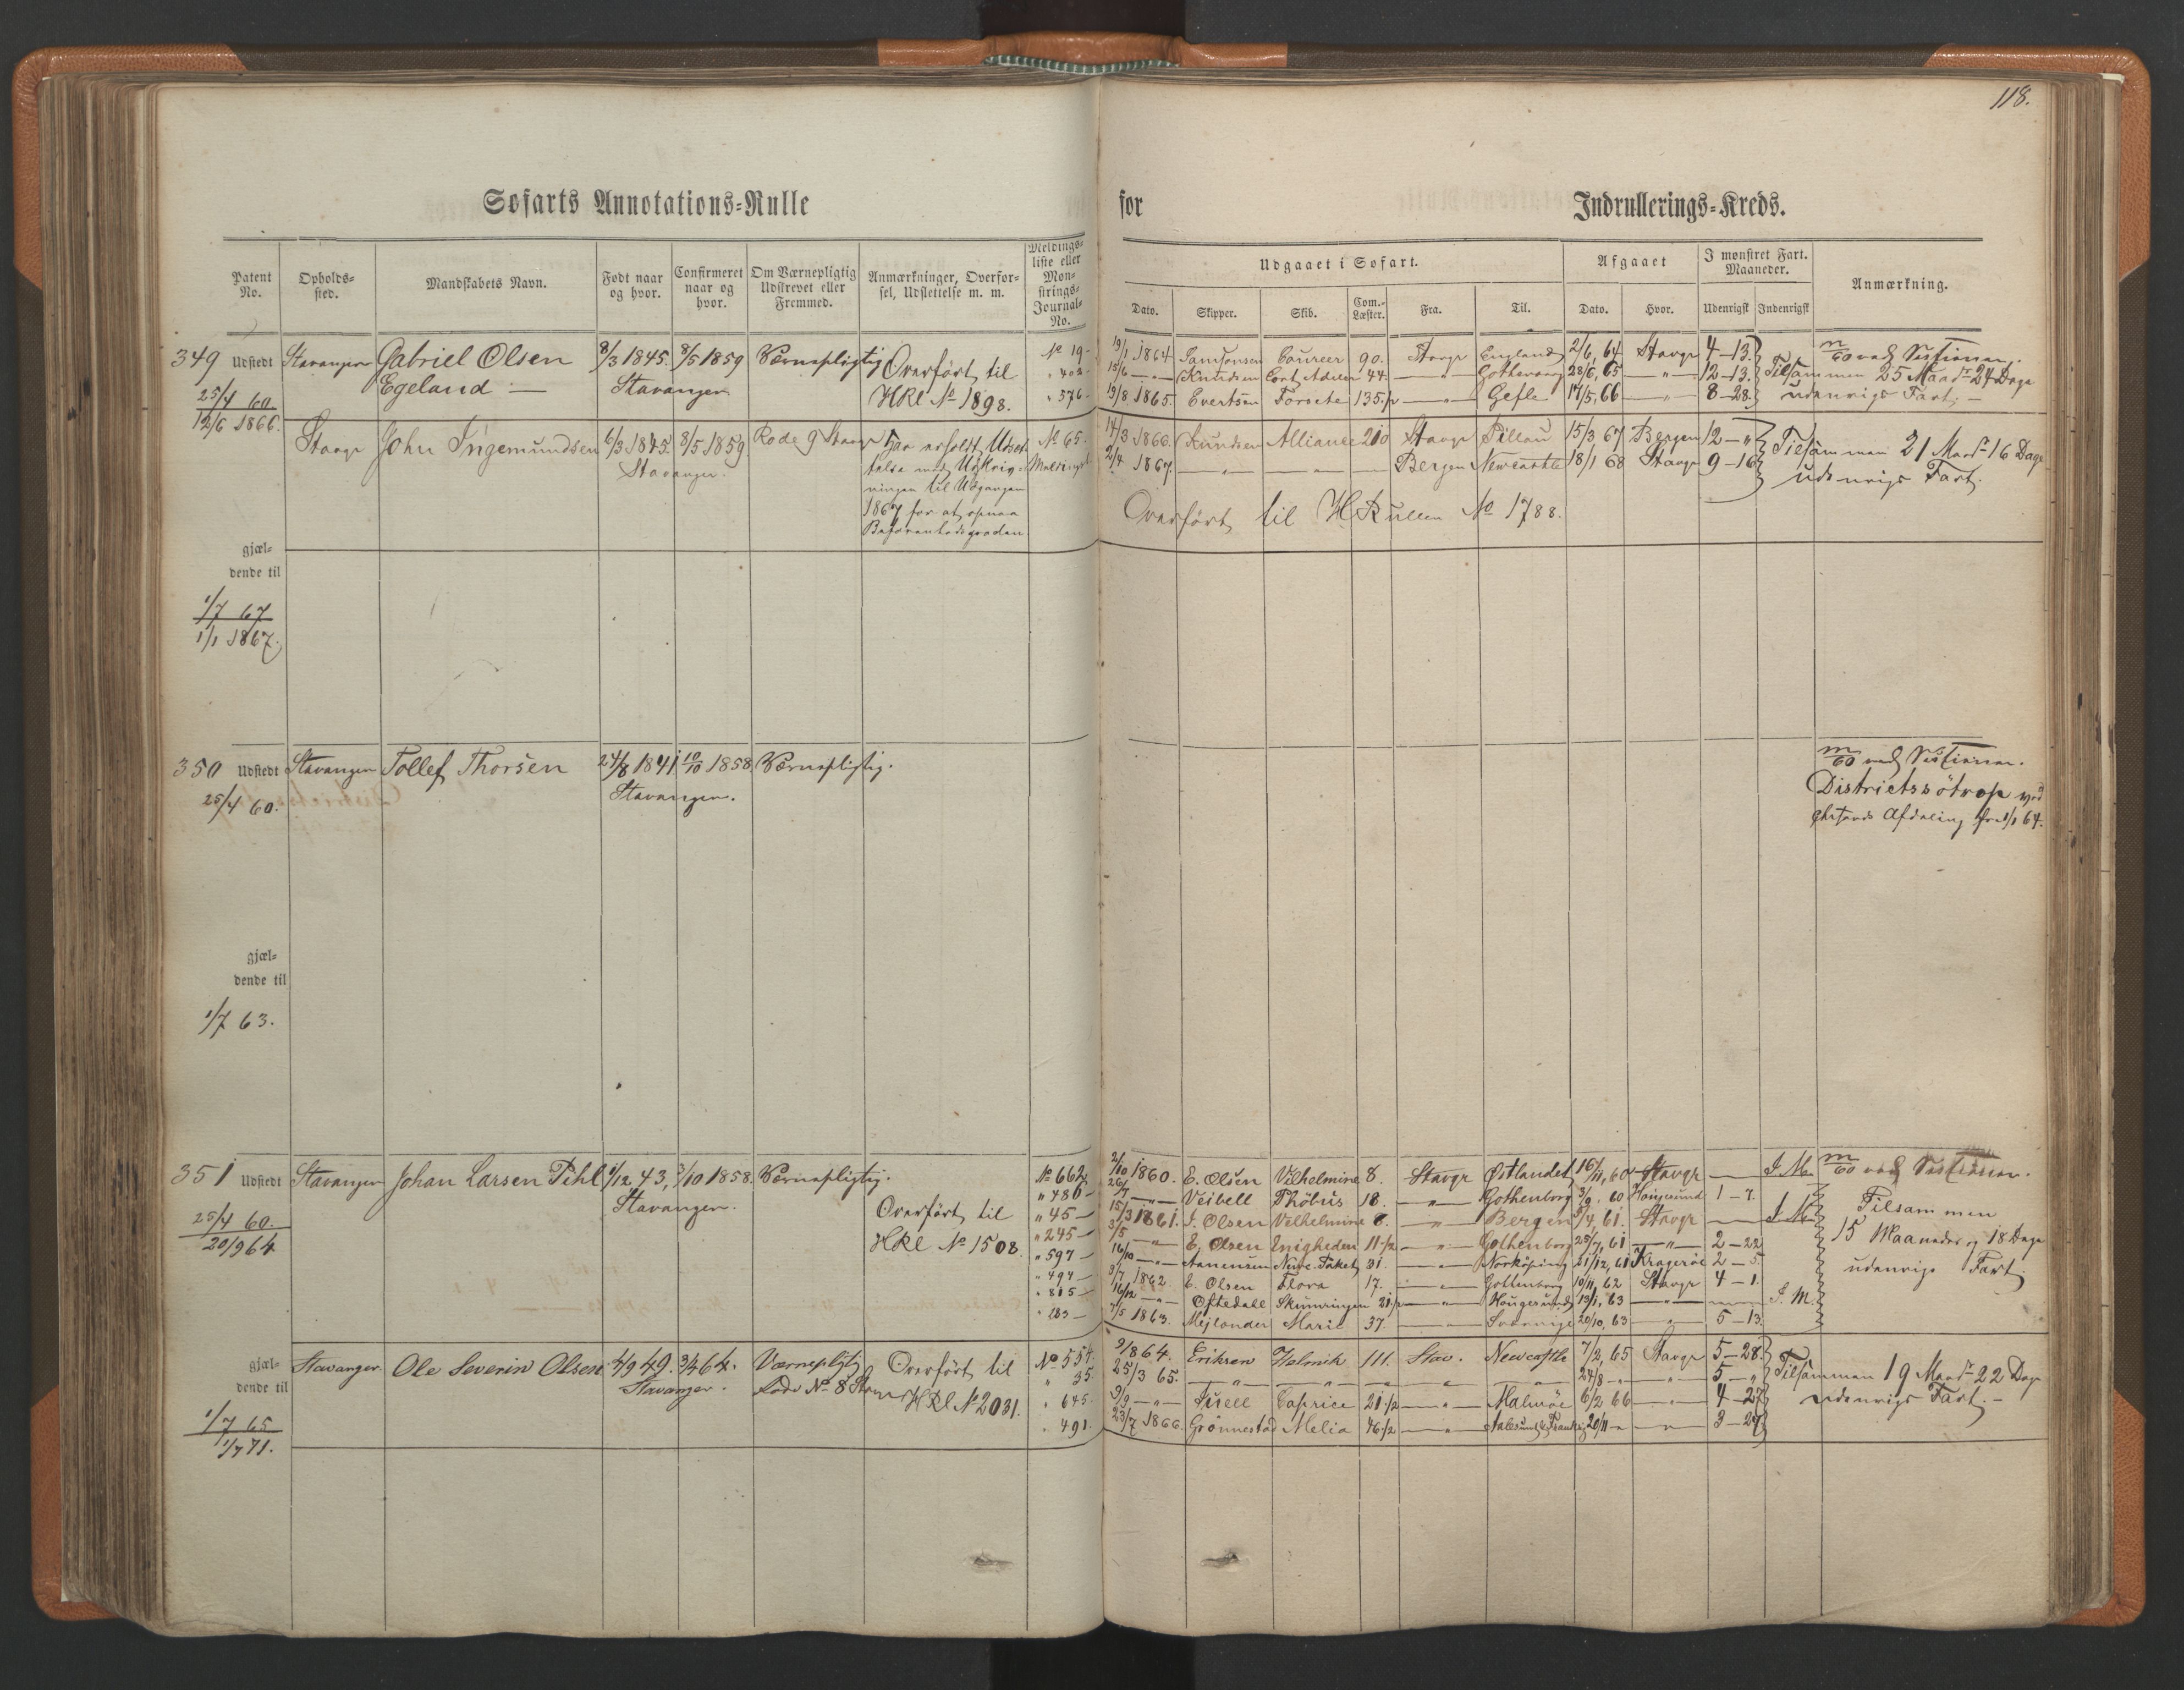 118.
Søfarts Annotations=Rulle
for
Indrullerings=Kreds.
Patent No.
Opholds=sted.
Mandskabets Navn.
Født naar og hvor.
Confirmeret naar og hvor.
Om Værnepligtig Udskrevet eller Fremmed.
Anmærkninger, Overfør=sel, Udslettelse m. m.
Meldings=liste eller Mon=strings=Journal=No.
Udgaaet i Søfart.
Afgaaet
I mønstret Fart. Maaneder.
Anmærkning.
Dato. Skipper. Skib. Com.=Læster. Fra. Til. Dato. Hvor. Udenrigsk Indenrigsk
349 Udstedt Stavanger Gabriel Olsen 8/3 1845. 8/5 1859 Værnepligtig Overført til No 19
Egeland Stavanger HRl No 1898.
25/4 60.
12/6 1866.
19/1 1864 Samsonsen Coureer 90. Stavgr England 2/6, 64 Stavgr 4–13. m/60 ved Sessionen.
15/6 Knudsen Cort Adeler 44. Gothenborg 28/6, 65 12–13. Tilsammen 25 Maadr 24 Dage
19/8 1865. Evertsen Forsete 135.½ Gefle 17/5, 66 8–28. udenrigs Fart.
Stavgr John Ingemundsen 6/3 1845. 8/5 1859 Rode 9 Stavgr Har erholdt Udset No 65.
Stavanger. telse med Udskriv=
ningen til Udgangen
1867 for at opnaa
Befarenhedsgraden
14/3 1866. Knudsen Alliance 210 Stavgr Pillau 15/3 67 Bergen 12–" Tilsammen 21 Maadr 16 Dage
2/4 1867. Bergen Newcastle 18/1 68 Stavgr 9–16 udenrigs Fart.
Overført til HRullen No 1788.
gjæl=
dende til
1/7 67
1/1 1867.
350 Udstedt Stavanger Tollef Thorsen 24/8 1841 10/10 1858. Værnepligtig.
25/4 60. Stavanger.
m/60 ved Sessionen.
Districtssötrop ved
Chrsands Afdeling fra 1/1 64.
gjæl=
dende til
1/7 63.
351 Udstedt Stavanger Johan Larsen Pihl 1/12 43, 3/10 1858. Værnepligtig. No 662
25/4 60. Stavanger. " 486
20/9 64 Overført til " 45
HRl No 1508. " 245
" 597
" 494
" 815
" 283
2/10 1860. E. Olsen Vilhelmine 8. Stavgr Østlandet 16/11, 60 Stavgr I. M. m/60 ved Sessionen.
Veibell Phöbus 18. Gothenborg 3/9, 60 Haugesund 1–7.
15/3 1861. J. Olsen Vilhelmine 8. Bergen 5/4, 61. Stavgr I. M. Tilsammen
3/5 E. Olsen Enigheden 11.½ Gothenborg 25/7, 61 2–22 15 Maaneder og 18 Dage
16/10 Nye. Paket 31. Norköping 21/12, 61 Kragerøe 2–5. udenrigs Fart.
3/7 1862. E. Olsen Flora 17. Gothenborg 10/11, 62 Stavgr 4–1.
16/12 Oftedall Skumringen 21.½ Haugesund 13/1, 63 I. M.
7/5 1863. Mejlander Marie 37. Sverrige 20/10, 63 5–13
gjæl=
dende til
1/7 65
1/7 71.
Stavanger. Ole Severin Olsen 4/9 49. 3/4 64. Værnepligt Overført til No 554.
Stavanger. Rode No 8 Stavgr HRl No 2031. " 35.
" 645.
" 491.
9/ 864. Eriksen Helmik 111. Stav. Newcastle 7/2, 65 Stavgr 5–28. Tilsammen 19 Maadr 22 Dage
25/3 65. 24/8 5–" udenrigs Fart.
9/9 Tisell Caprice 21.½ Malmøe 6/2 66 4–27
23/7 1866. Grönnestad Melia 46.½ Aalesund & 20/11 3–27